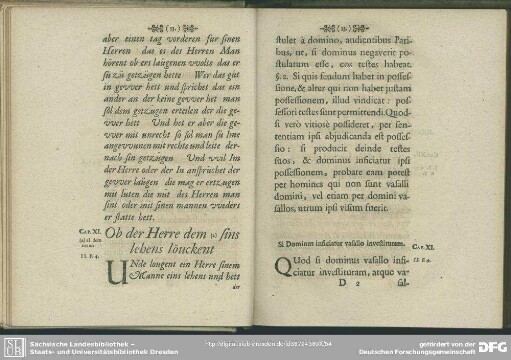 ( 11. )
aber einen tag vorderen fur sinen
Herren das es des Herren Man
hörent ob ers laugenen wolte das er
sü zü getzügen hette Wer das gut
in gewer hett und sprichet das ein
ander an der keine gewer het man
söl dem getzügen erteilen der die ge-
wer hett Und het er aber die ge-
wer mit unrecht so söl man su Ime
angewunnen mit rechte und leite der-
nach sin getzügen Und wil Im
der Herre oder der In ansprichet der
gewer laugen die mag er ertzugen
mit luten die mit des Herren man
sint oder mit sinen mannen wuders
er statte hett.
CAP. XI.
(a) al dem
II. F. 4.
Ob der Herre dem (a) sins
lehens löuckent
UNde lougent ein Herre sinem
Manne eins lehens und hett
der
( 11. )
stulet à domino, audientibus Pari-
bus, ut, si dominus negaverit po-
stulatum esse, eos testes habeat.
§. 2. Si quis feudum habet in posses-
sione, & alter qui non habet justam
possessionem, illud vindicat: pos-
sessori testes sunt permittendi. Quod-
si verò vitiosè possideret, per sen-
tentiam ipsi abjudicanda est posses-
sio: si producit deinde testes
suos, & dominus inficiatur ipsi
possessionem, probare eam potest
per homines qui non sunt vasalli
domini, vel etiam per domini va-
sallos, utrum ipsi visum fuerit.
Si Dominus inficiatur vasallo investituram.
CAP. XI.
II. F. 4.
QUod si dominus vasallo infi-
ciatur investituram, atque va-
D 2
sal-
Sächsische Landesbibliothek –
Staats- und Universitätsbibliothek Dresden
gefördert von der
Deutschen Forschungsgemeinschaft
SLUB
DFG